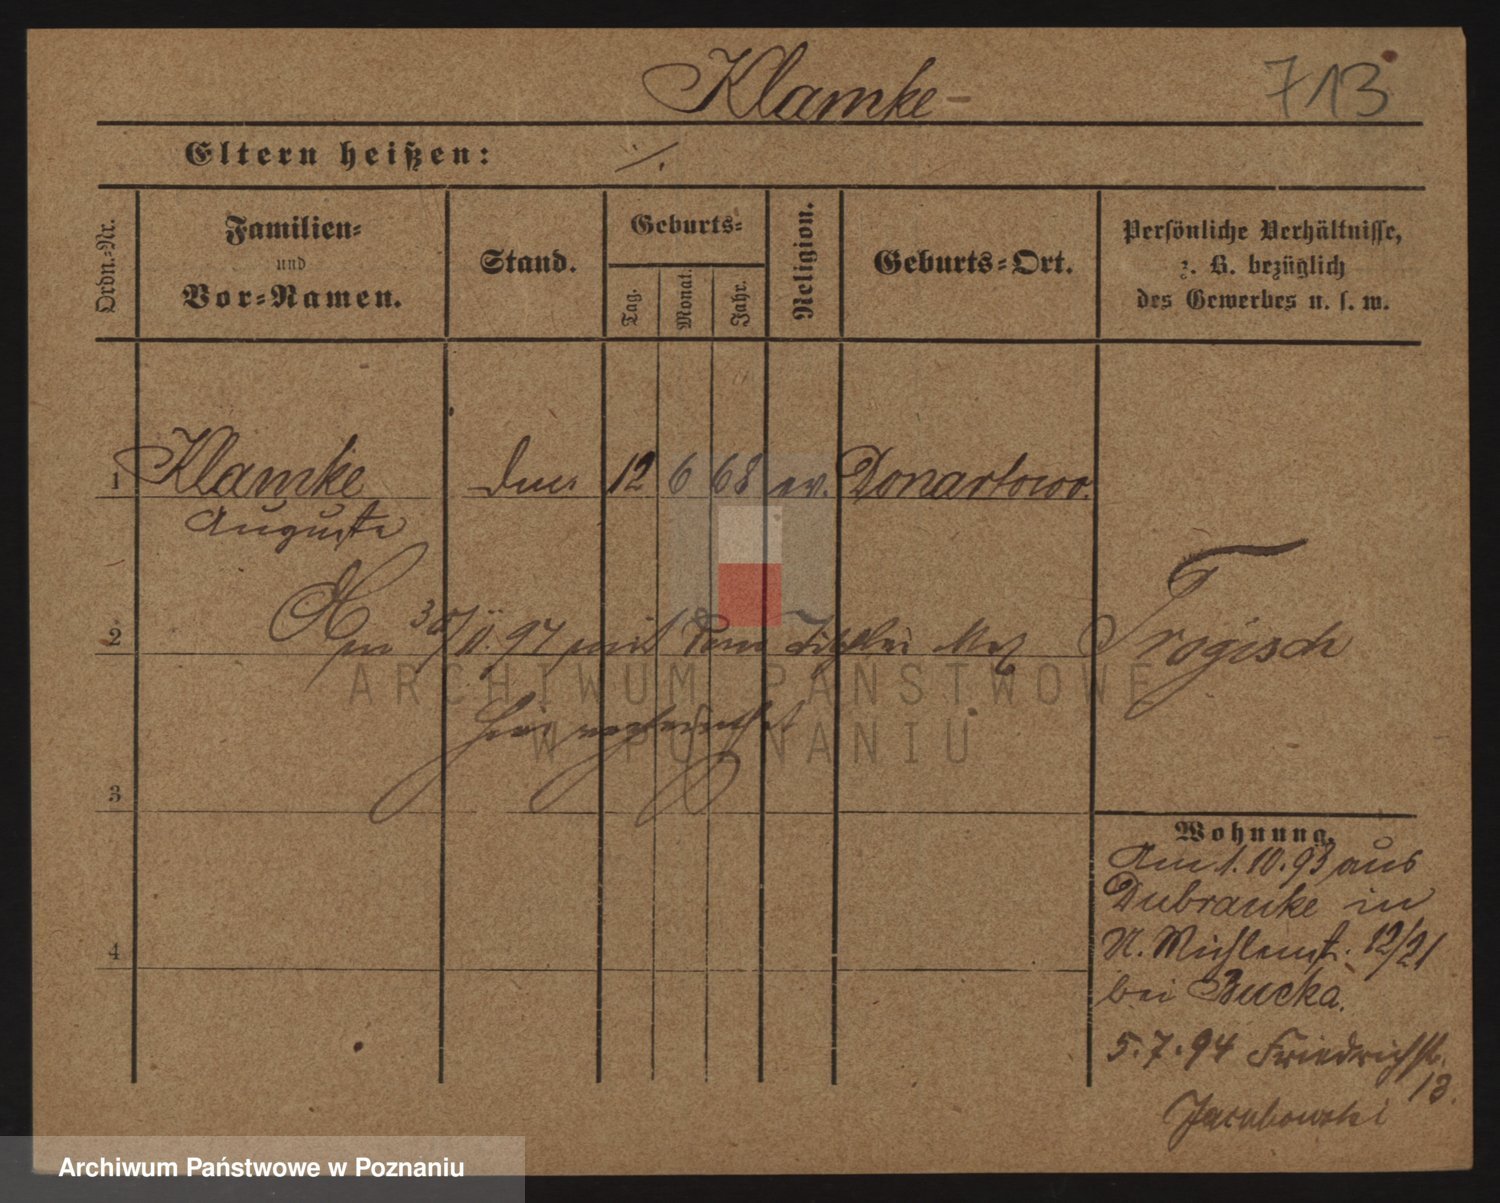 Klamke
713
Eltern heißen: ·/.
Ordn.-Nr.
Familien-
und
Vor-Namen.
Stand.
Geburts-
Tag.
Monat.
Jahr.
Religion.
Geburts-Ort.
Persönliche Verhältnisse,
z. B. bezüglich
des Gewerbes u. s. w.
1 Klamke 12 6 68 ev. Donartowo.
Auguste
2 Am 30/11. 97 mit dem Tischler Trogisch
ARCHIWUM PAŃSTWOWE
hier verheirathet
W POZNANIU
3
Wohnung.
Am 1. 10. 93 aus
Dubranke in
N. 12/21
bei Bucka.
4
5. 7. 94 Friedrichstr.
13.
Jacubowski
Archiwum Państwowe w Poznaniu